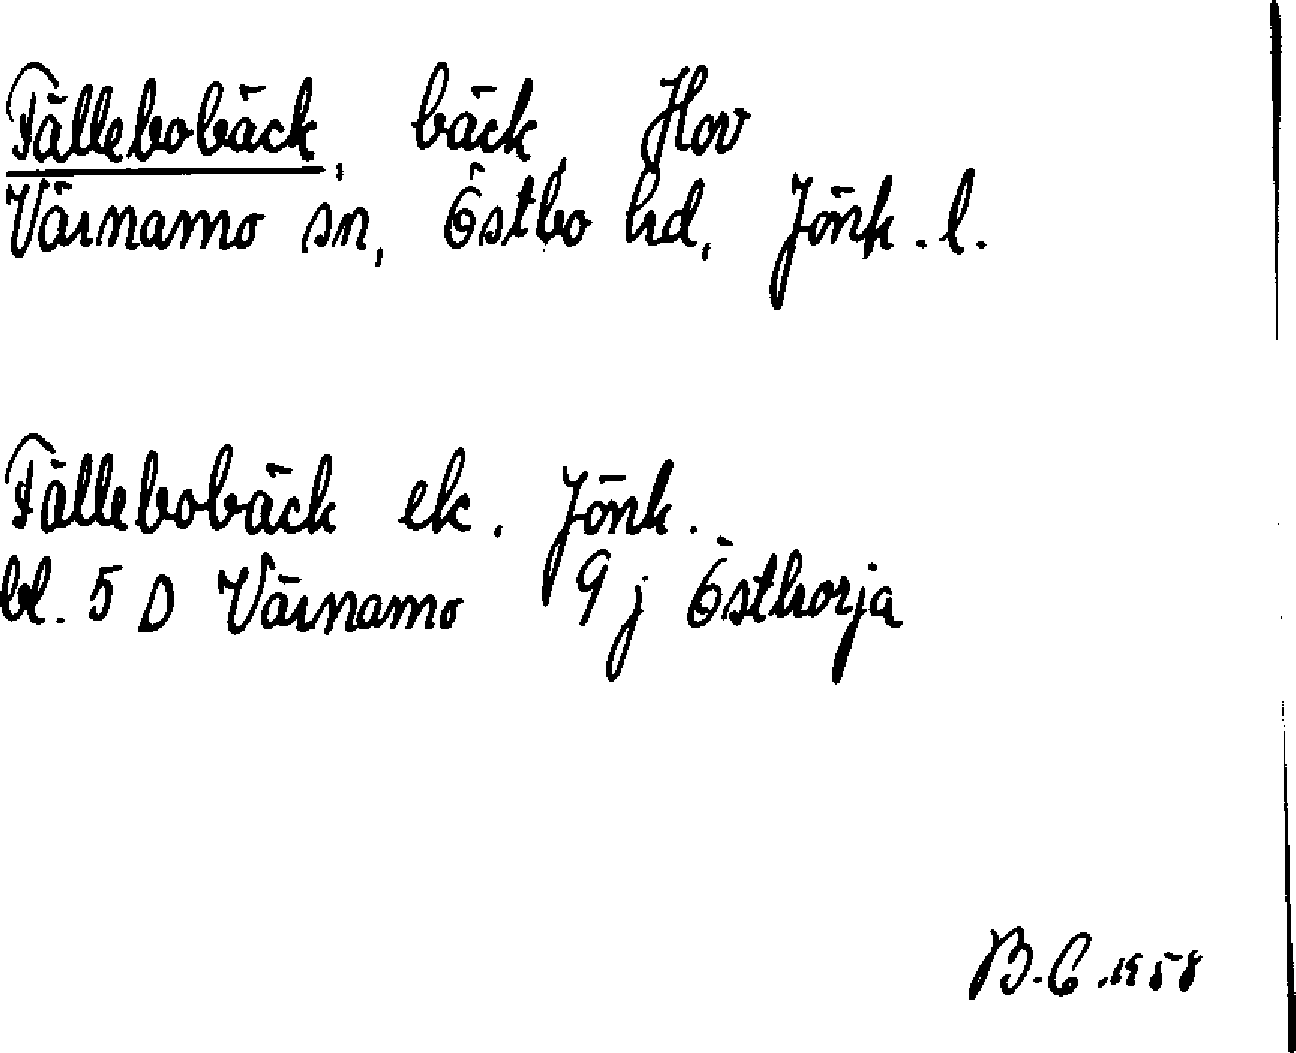 Fällebobäck, bäck, Hov
Värnamo sn, Östbo hd, Jönk. l.
Fällebobäck ek. Jönk.
bl. 5 D Värnamo 9 j Östhorja
B.C. 1958